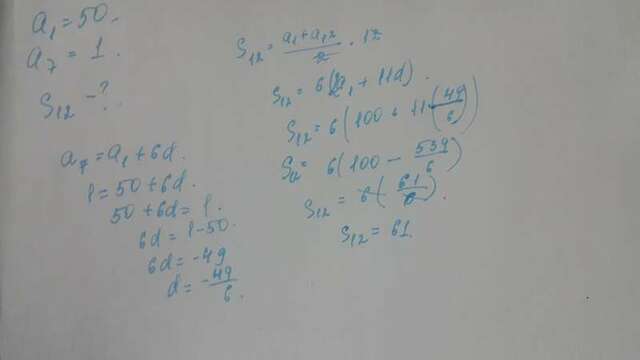 a₁ = 50.
a₇ = 1.
S₁₂ - ?
a₇ = a₁ + 6d.
1 = 50 + 6d.
50 + 6d = 1.
6d = 1 - 50.
6d = -49
d = -49/6.
S₁₂ = (a₁ + a₁₂)/2 · 12
S₁₂ = 6(2a₁ + 11d).
S₁₂ = 6(100 + 11(-49/6))
S₁₂ = 6(100 - 539/6)
S₁₂ = 6(61/6).
S₁₂ = 61.